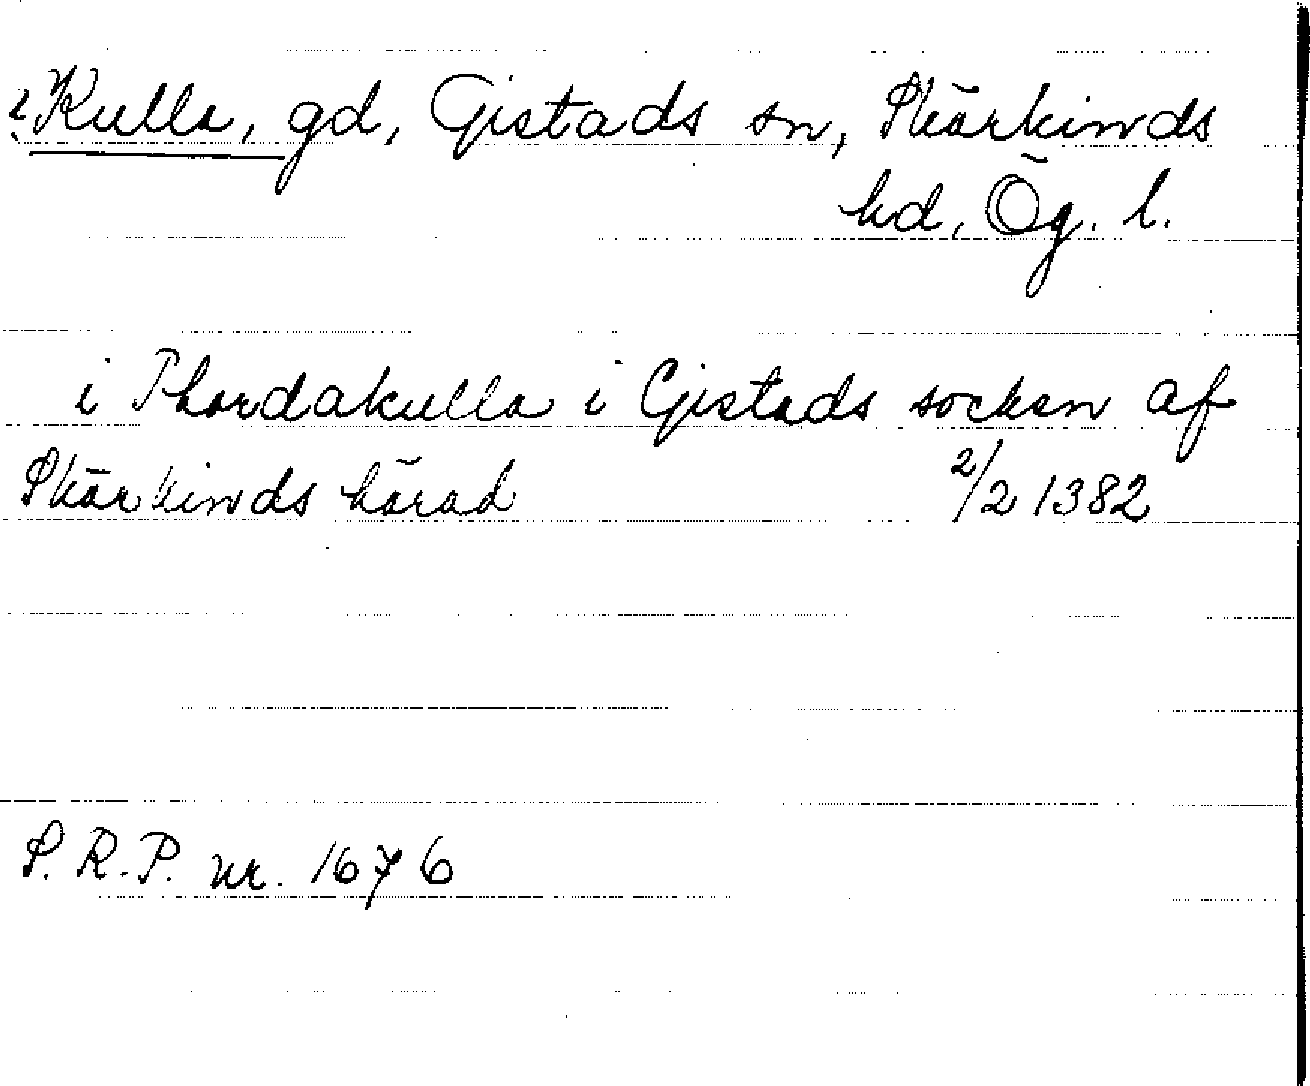 ? Kulla, gd, Gistads sn, Skärkinds
hd, Ög. l.
i Thordakulla i Gistads socken af
Skärkinds härad 2/2 1382
S. R. P. nr. 1676